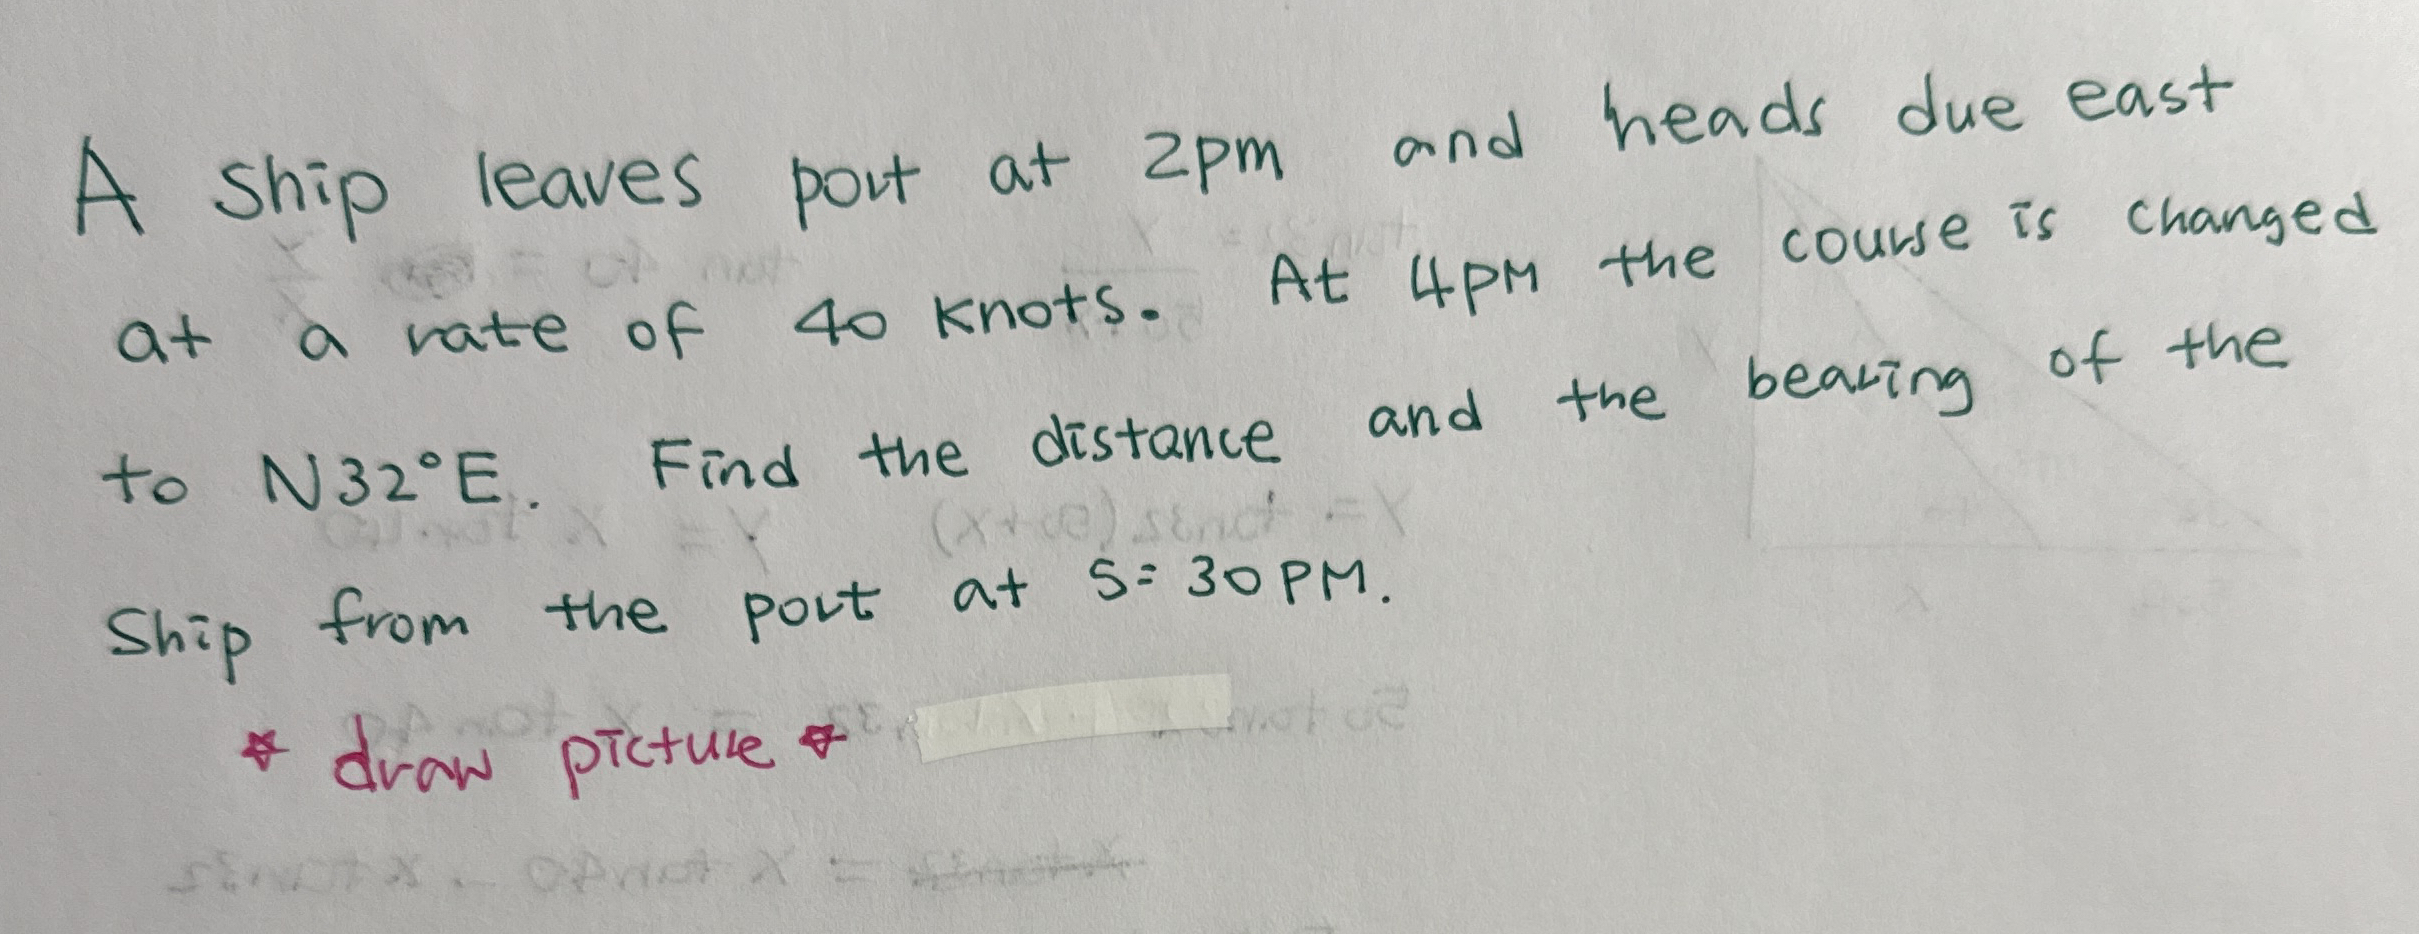 A ship leaves port at 2pm and heads due east
at a rate of 40 knots. At 4PM the course is changed
to N32°E. Find the distance and the bearing of the
Ship from the port at 5:30PM.
☆ draw picture ☆